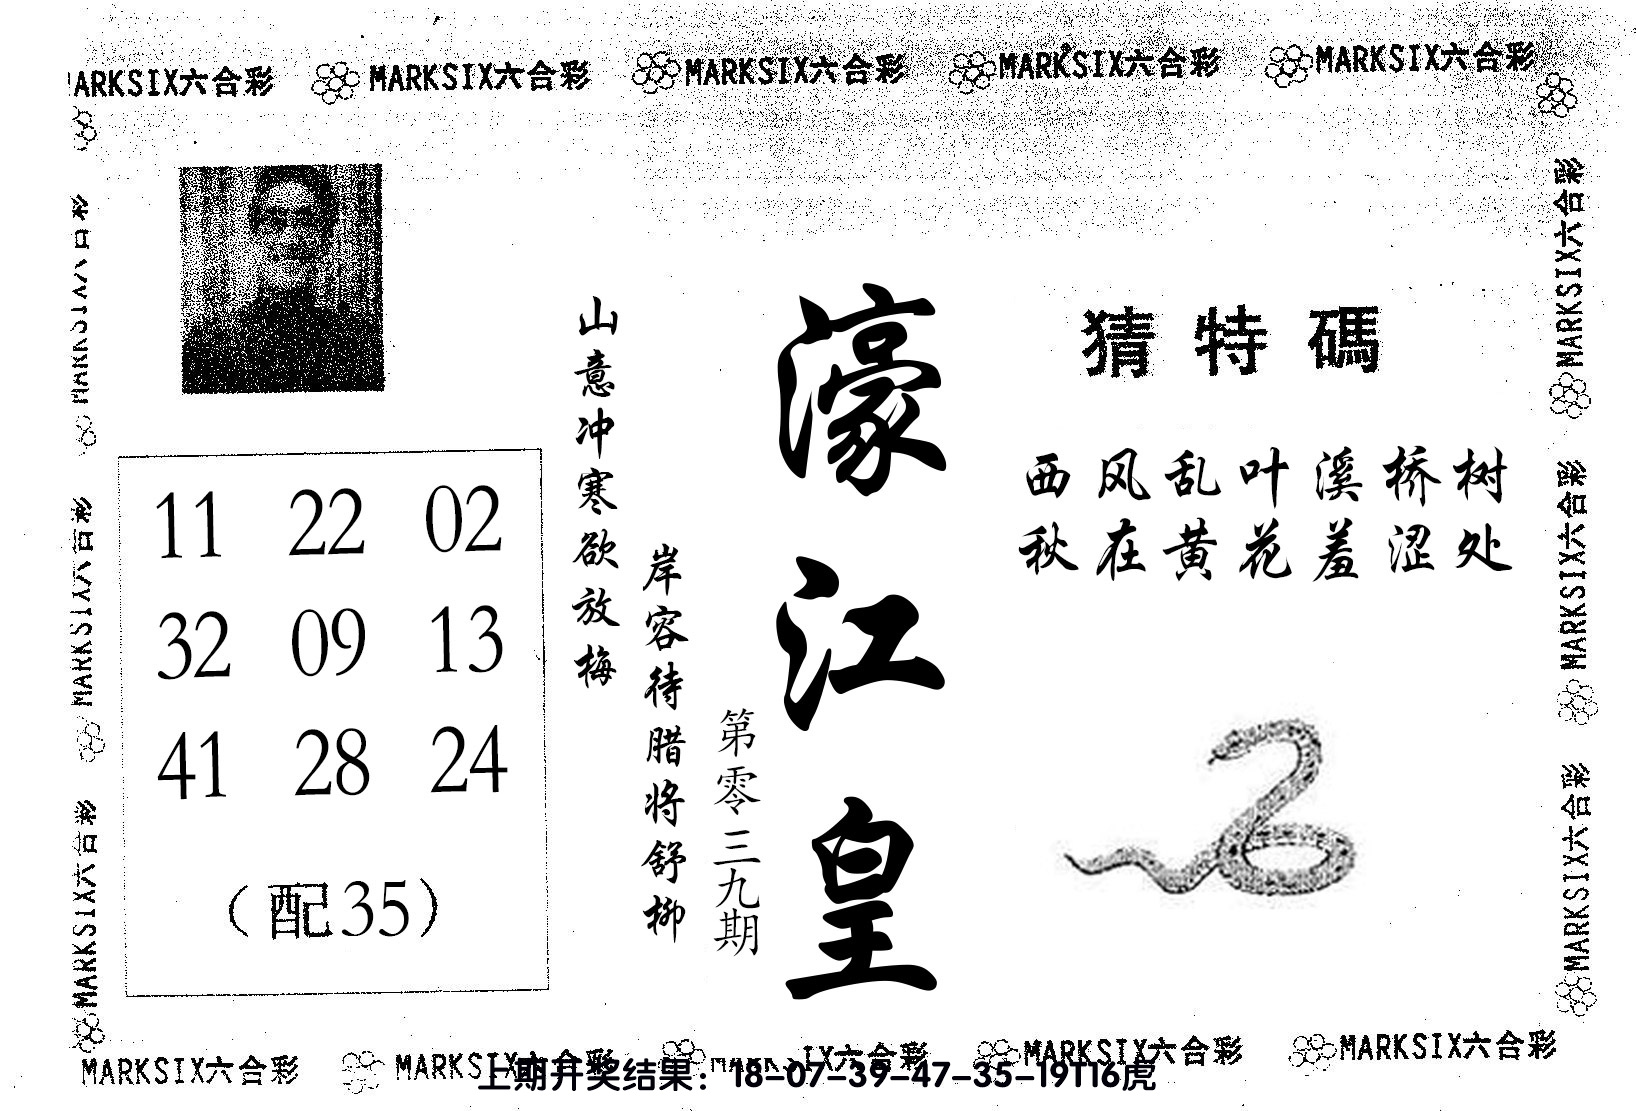 MARKSIX六合彩 MARKSIX六合彩 MARKSIX六合彩 MARKSIX六合彩 MARKSIX六合彩
猜特碼
西风乱叶溪桥树
秋在黄花羞涩处
濠江皇
第零三九期
山意冲寒欲放梅
岸容待腊将舒柳
11 22 02
32 09 13
41 28 24
（配35）
MARKSIX六合彩
MARKSIX六合彩
MARKSIX六合彩
MARKSIX六合彩
MARKSIX六合彩
MARKSIX六合彩
MARKSIX六合彩 MARKSIX六合彩 IX六合彩 MARKSIX六合彩 MARKSIX六合彩
上期开奖结果：18-07-39-47-35-19T16虎